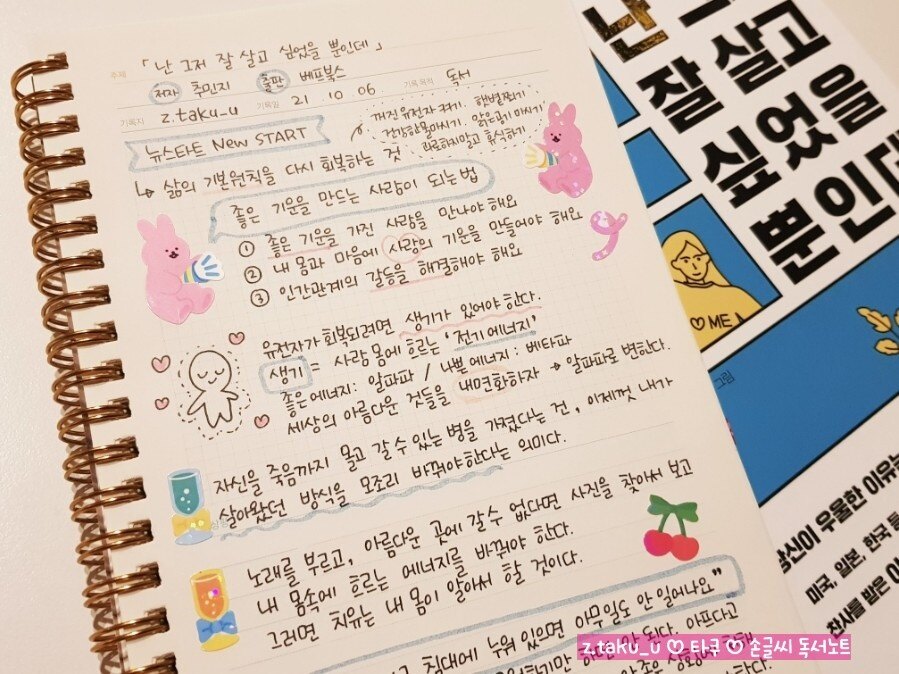 주제 「난 그저 잘 살고 싶었을 뿐인데」
저자 추민지 출판 베프북스
기록자 z.taku_u 기록일 21. 10. 06. 기록목적 독서
뉴스타트 New START
꺼진 유전자 켜기. 햇볕쬐기
건강한물마시기. 맑은공기 마시기
과로하지말고 휴식하기
↳ 삶의 기본원칙을 다시 회복하는 것
좋은 기운을 만드는 사람이 되는법
① 좋은 기운을 가진 사람을 만나야해요
② 내 몸과 마음에 사랑의 기운을 만들어야 해요
③ 인간관계의 갈등을 해결해야 해요
유전자가 회복되려면 생기가 있어야 한다.
생기 = 사람 몸에 흐르는 '전기에너지'
좋은에너지: 알파파 / 나쁜에너지: 베타파
세상의 아름다운 것들을 내면화하자 → 알파파로 변한다.
자신을 죽음까지 몰고 갈 수 있는 병을 가졌다는 건, 이제껏 내가
살아왔던 방식을 모조리 바꿔야한다는 의미다.
노래를 부르고, 아름다운 곳에 갈수 없다면 사진을 찾아서 보고
내 몸속에 흐르는 에너지를 바꿔야 한다.
그러면 치유는 내 몸이 알아서 할 것이다.
침대에 누워 있으면 아무일도 안 일어나요"
안 된다. 아프다고
난 그
잘 살고
싶었을
뿐인데
♡ ME
그림
당신이 우울한 이유는
미국, 일본, 한국 등
찬사를 받은
z.taku_u ♡ 타쿠 ♡ 손글씨 독서노트